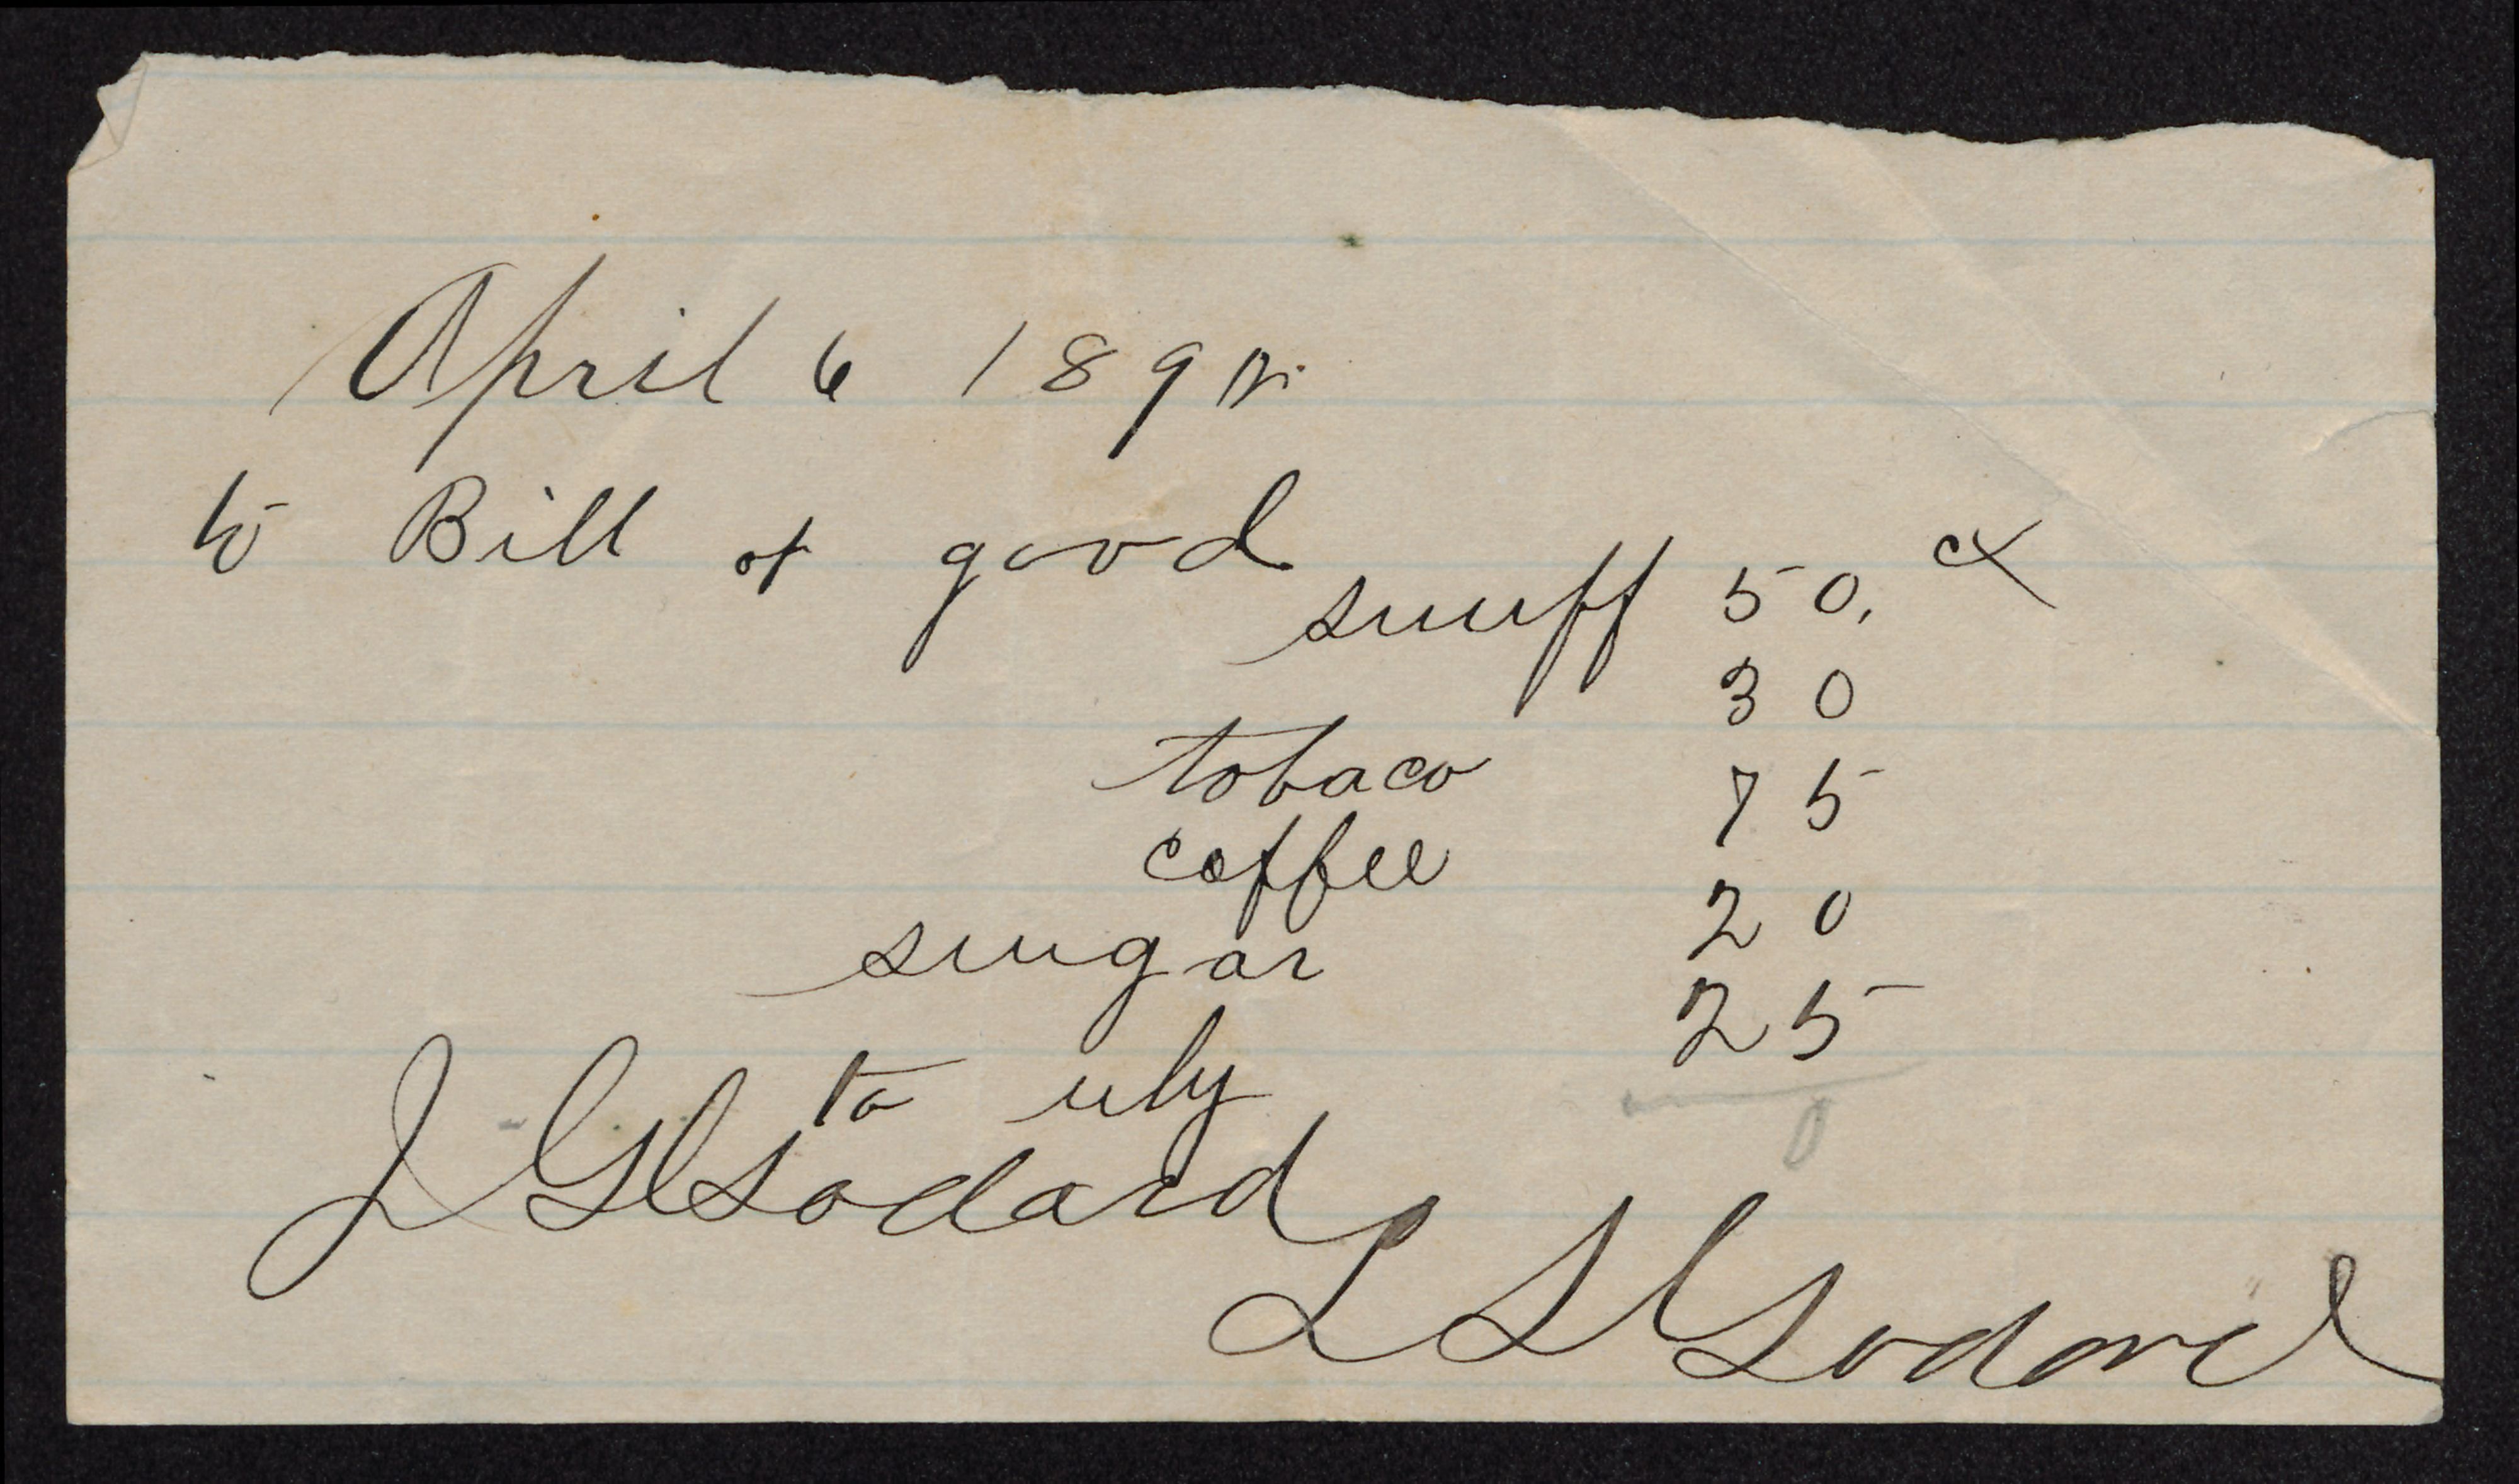 April 6 189
to Bill of good
snuff 50, ct
30
tobaco 75
coffee 20
sugar 25
to
0
J G Godard
L S Godard